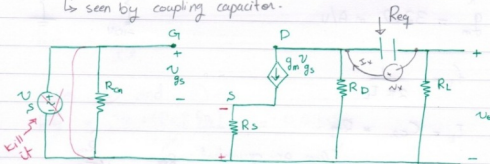 ↳ seen by coupling capacitor.
Req
G
D
+
+
v
gs
-
gm vgs
Ix
Vx
Rin
RD
RL
vs
S
-
Rs
+
-
vo
kill
it